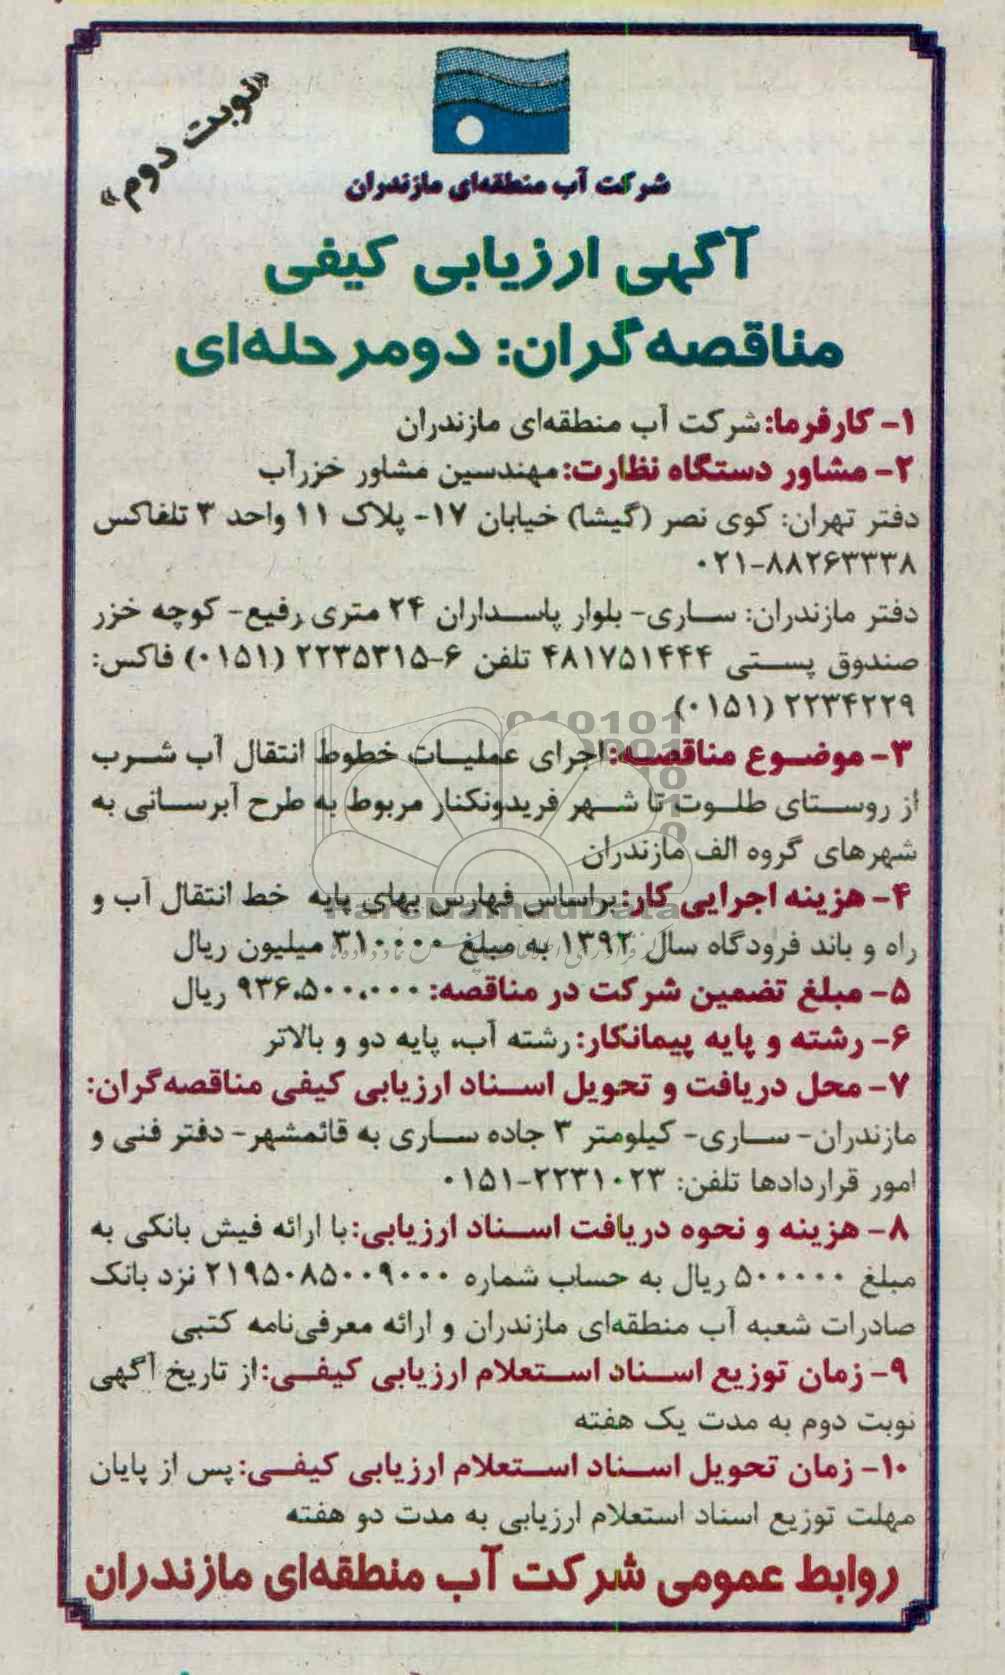 «نوبت دوم»
شرکت آب منطقه‌ای مازندران
آگهی ارزیابی کیفی
مناقصه‌گران: دومرحله‌ای
۱- کارفرما: شرکت آب منطقه‌ای مازندران
۲- مشاور دستگاه نظارت: مهندسین مشاور خزرآب
دفتر تهران: کوی نصر (گیشا) خیابان ۱۷- پلاک ۱۱ واحد ۳ تلفاکس
۰۲۱-۸۸۲۶۳۳۳۸
دفتر مازندران: ساری- بلوار پاسداران ۲۴ متری رفیع- کوچه خزر
صندوق پستی ۴۸۱۷۵۱۴۴۴ تلفن ۶-۲۲۳۵۳۱۵ (۰۱۵۱) فاکس:
۲۲۳۴۲۲۹ (۰۱۵۱)
۳- موضوع مناقصه: اجرای عملیات خطوط انتقال آب شرب
از روستای طلوت تا شهر فریدونکنار مربوط به طرح آبرسانی به
شهرهای گروه الف مازندران
۴- هزینه اجرایی کار: براساس فهارس بهای پایه خط انتقال آب و
راه و باند فرودگاه سال ۱۳۹۲ به مبلغ ۳۱۰۰۰۰ میلیون ریال
۵- مبلغ تضمین شرکت در مناقصه: ۹۳۶،۵۰۰،۰۰۰ ریال
۶- رشته و پایه پیمانکار: رشته آب، پایه دو و بالاتر
۷- محل دریافت و تحویل اسناد ارزیابی کیفی مناقصه‌گران:
مازندران- ساری- کیلومتر ۳ جاده ساری به قائمشهر- دفتر فنی و
امور قراردادها تلفن: ۲۲۳۱۰۲۳-۰۱۵۱
۸- هزینه و نحوه دریافت اسناد ارزیابی: با ارائه فیش بانکی به
مبلغ ۵۰۰۰۰۰ ریال به حساب شماره ۲۱۹۵۰۸۵۰۰۹۰۰۰ نزد بانک
صادرات شعبه آب منطقه‌ای مازندران و ارائه معرفی‌نامه کتبی
۹- زمان توزیع اسناد استعلام ارزیابی کیفی: از تاریخ آگهی
نوبت دوم به مدت یک هفته
۱۰- زمان تحویل اسناد استعلام ارزیابی کیفی: پس از پایان
مهلت توزیع اسناد استعلام ارزیابی به مدت دو هفته
روابط عمومی شرکت آب منطقه‌ای مازندران